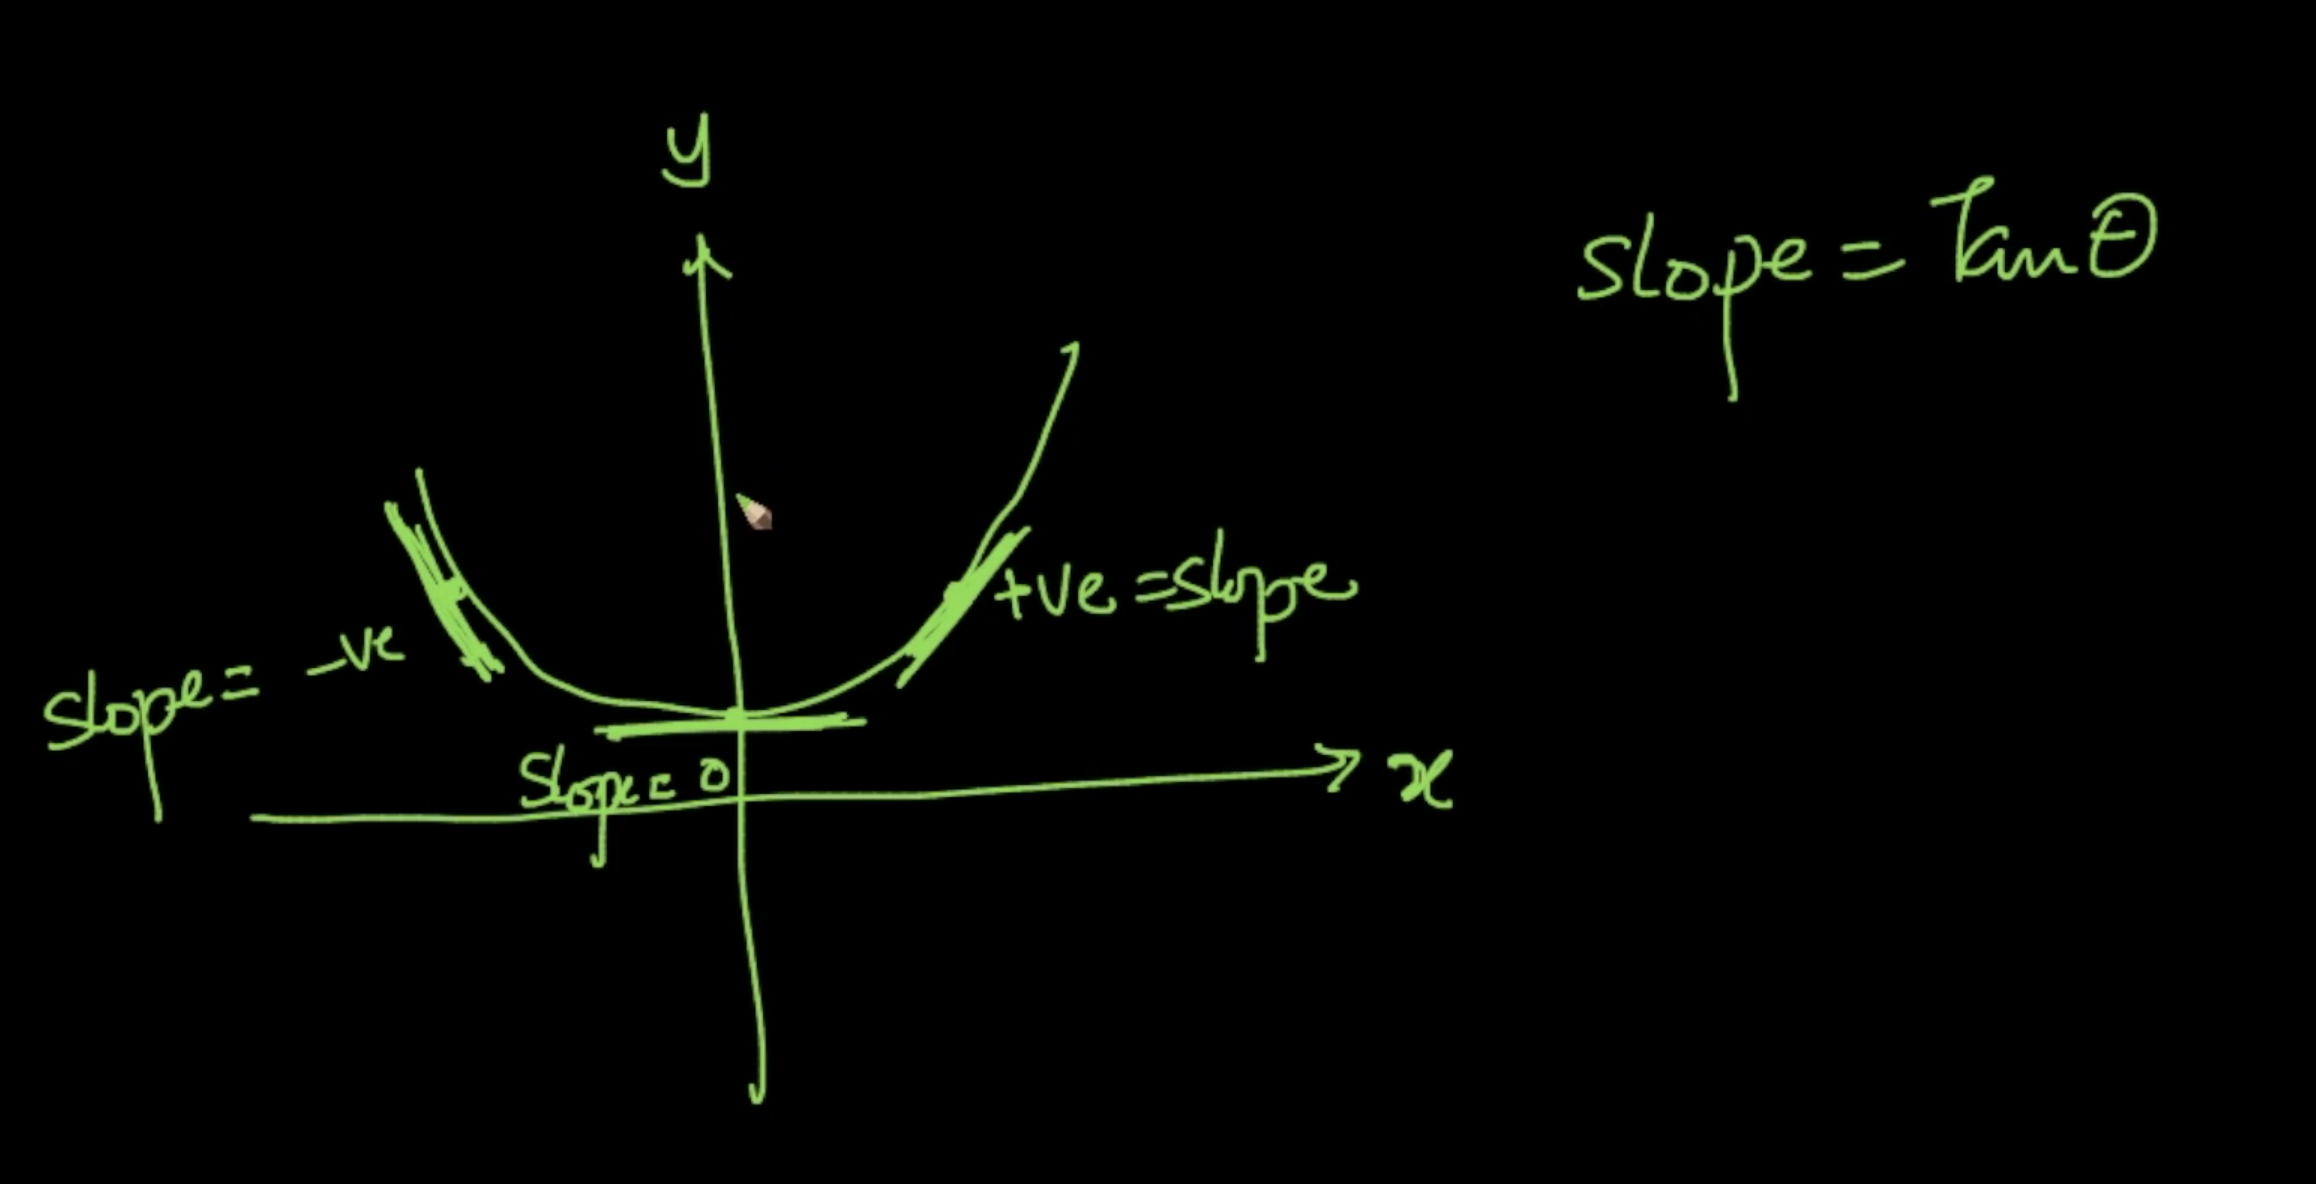 y
slope = Tan θ
+ve = slope
slope = -ve
slope = 0
x